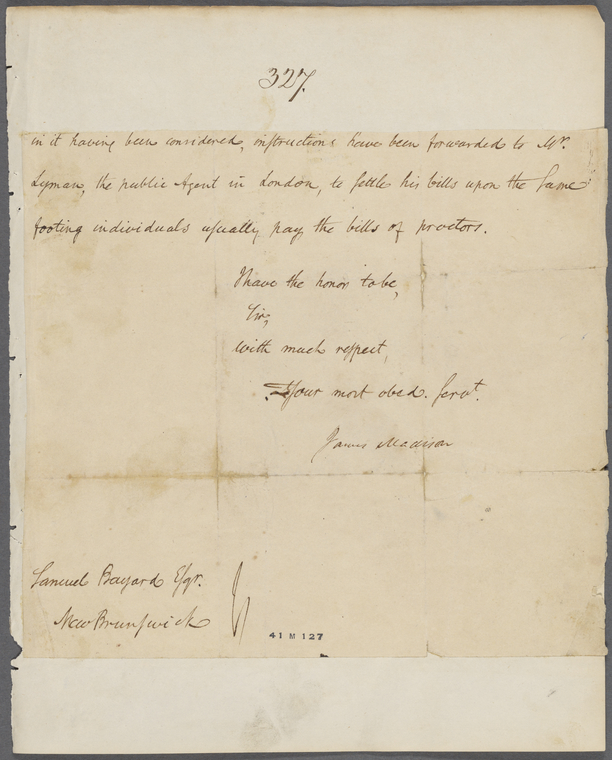 327.
in it having been considered, instructions have been forwarded to Mr.
Lyman, the public Agent in London, to settle his bills upon the same
footing individuals usually pay the bills of proctors.
I have the honor to be,
Sir,
with much respect,
Your most obed. servt.
James Madison
Samuel Bayard Esqr.
New Brunswick
41 M 127